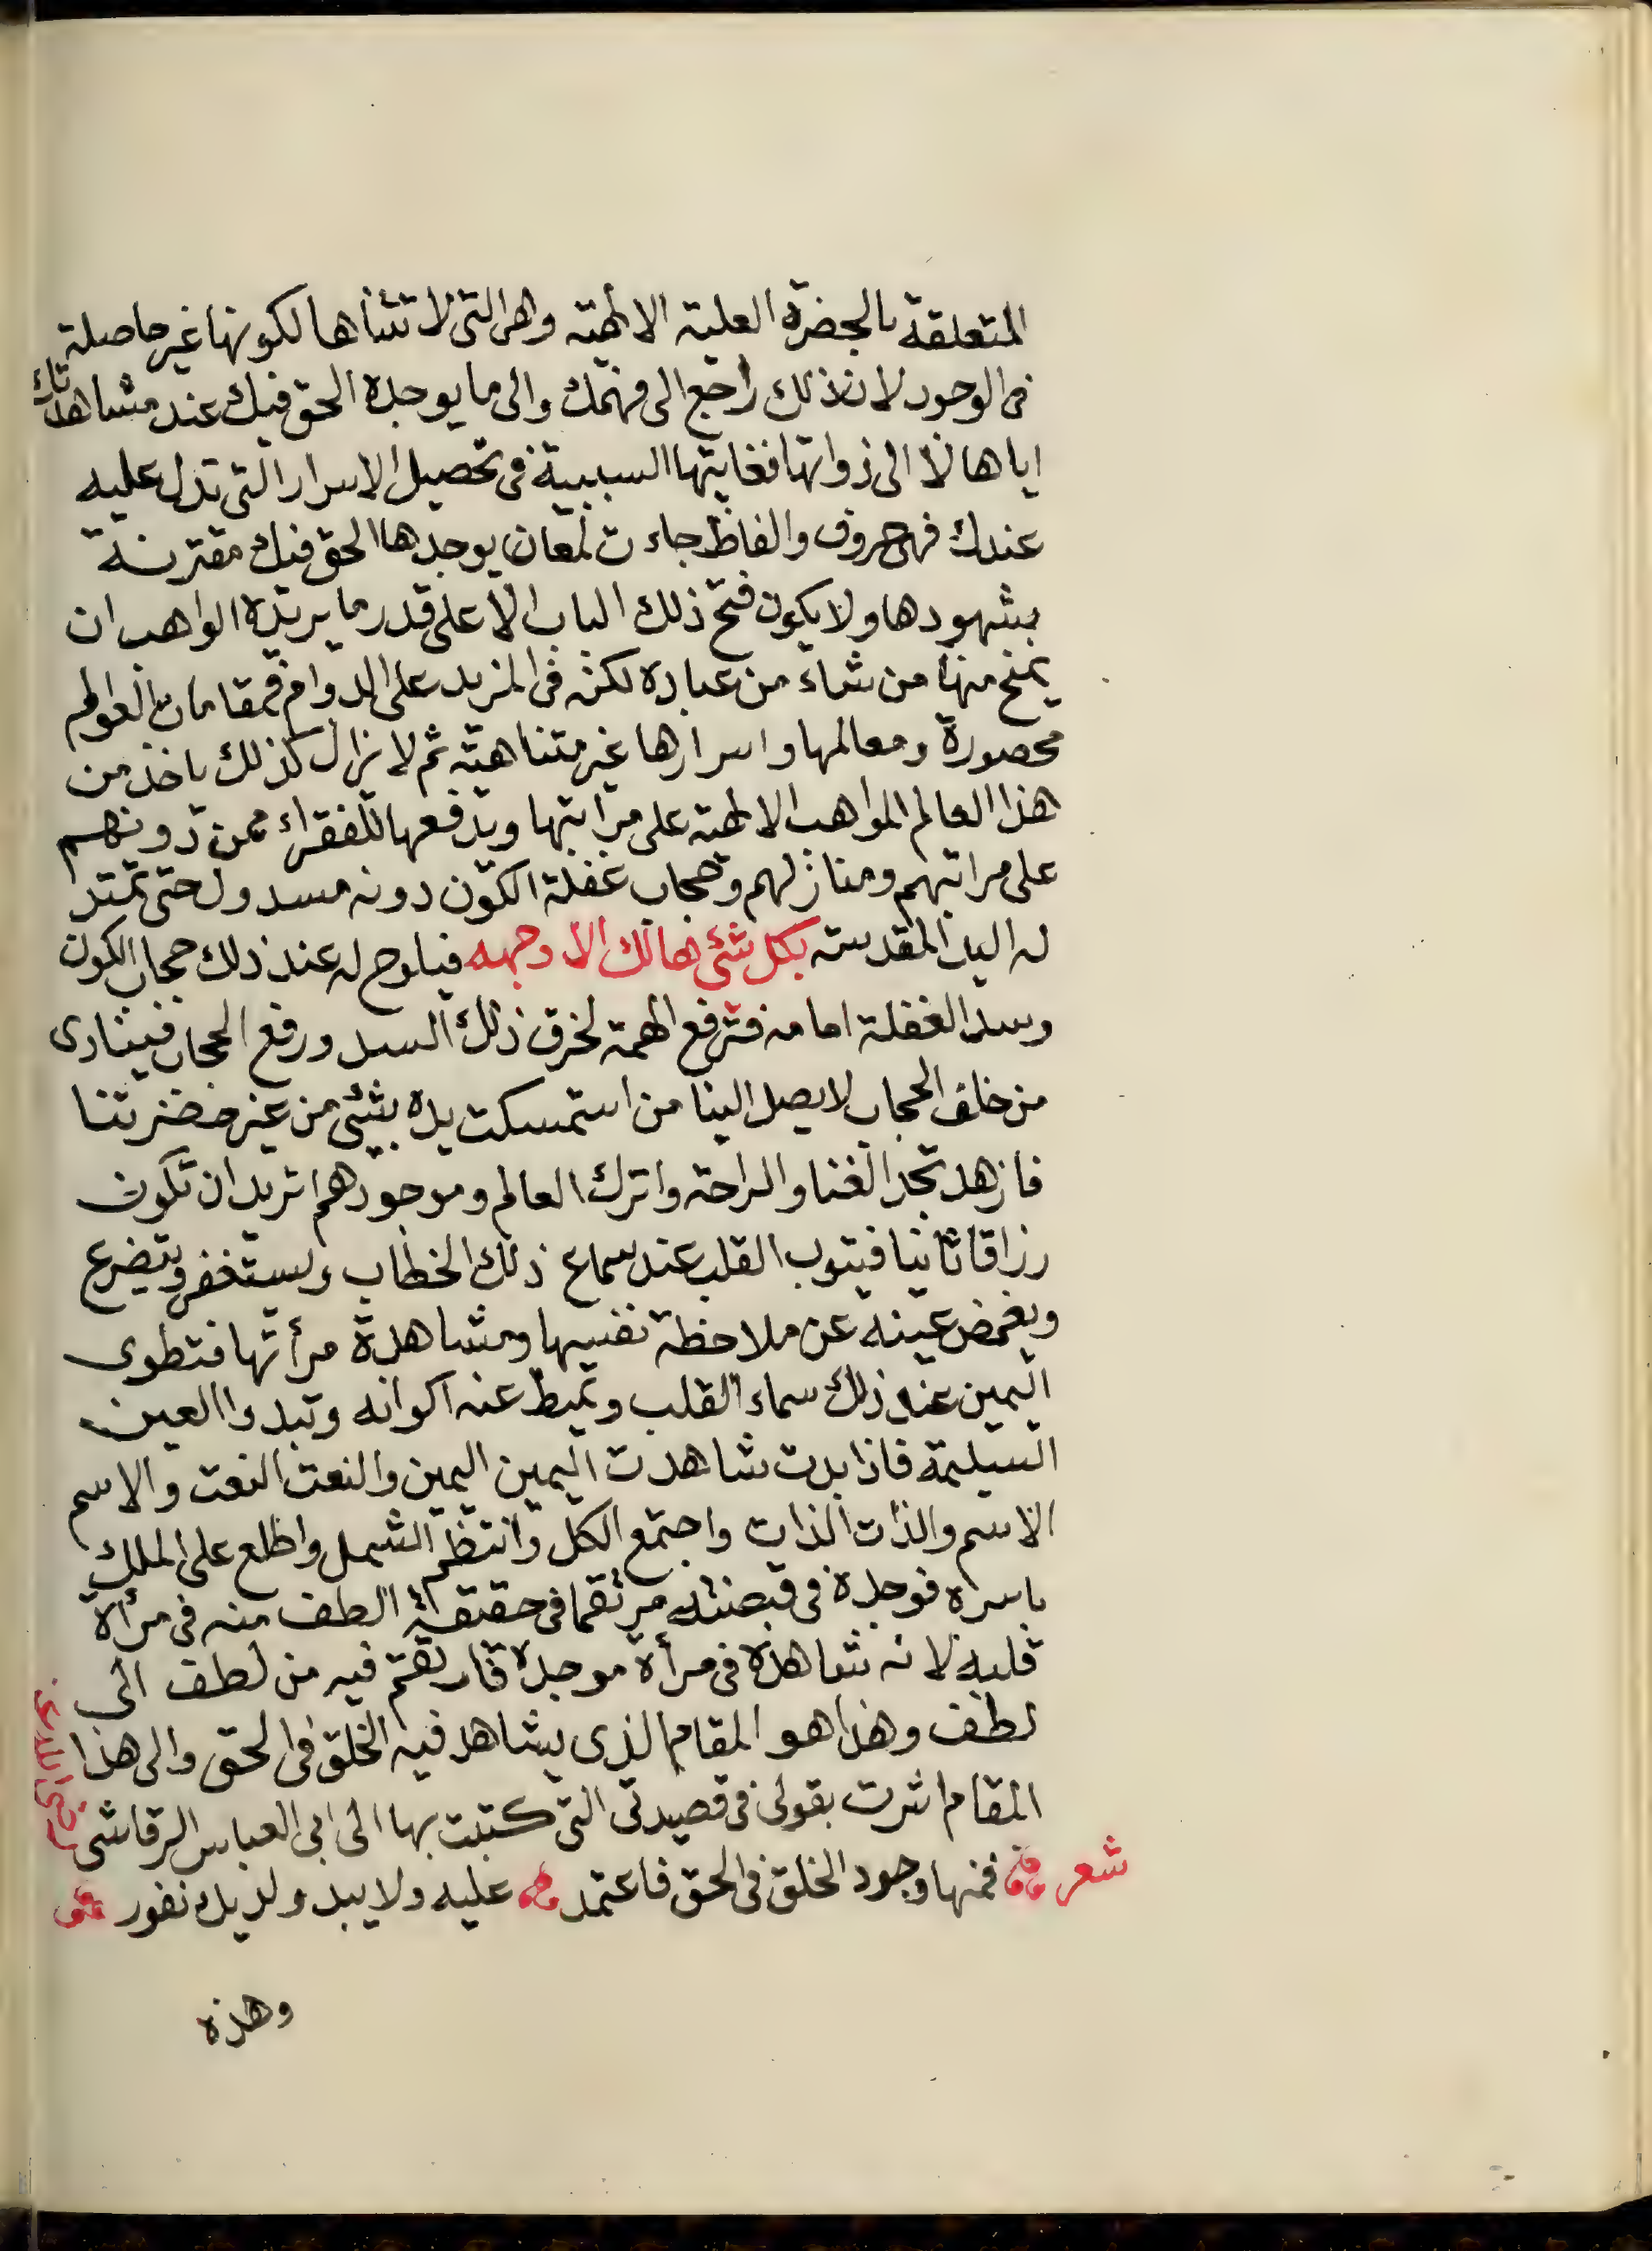 المتعلقة بالحضرة العلية الالهية وهى التى لا تتناها لكونها غير حاصلة
فى الوجود لان ذلك راجع الى فهمك والى ما يوجده الحق فيك عند مشاهدتك
اياها لا الى ذواتها فغايتها السببية فى تحصيل الاسرار التى تدل عليه
عندك فهى حروف والفاظ جاءت لمعان يوجدها الحق فيك مقترنة
بشهودها ولا يكون فتح ذلك الباب الا على قدر ما يريده الواهب ان
يمنح منها من شاء من عباده لكنه فى المزيد على الدوام فمقامات العوالم
محصورة ومعالمها واسرارها غير متناهية ثم لا يزال كذلك ياخذ من
هذا العالم المواهب الالهية على مراتبها ويدفعها للفقراء ممن دونهم
على مراتبهم ومنازلهم وحجاب غفلة الكون دونه مسدول حتى تمتد
له اليد المقدسة بكل شئ هالك الا وجهه فيلوح له عند ذلك حجاب الكون
وسد الغفلة امامه فترفع الهمة لخرق ذلك السد ورفع الحجاب فينادى
من خلف الحجاب لا يصل الينا من استمسكت يده بشئ من غير حضرتنا
فازهد تجد الغنا والراحة واترك العالم وموجودهم اتريد ان تكون
رزاقا ثانيا فيتوب القلب عند سماع ذلك الخطاب ويستغفر ويتضرع
ويغمض عينه عن ملاحظة نفسها ومشاهدة مرأتها فتطوى
اليمين عند ذلك سماء القلب وتميط عنه اكوانه وتبدوا العين
السليمة فاذا بدت شاهدت اليمين اليمين والنعت النعت والاسم
الاسم والذات الذات واجتمع الكل وانتظم الشمل واطلع على الملك
باسره فوجده فى قبضته مرتقما فى حقيقة الطف منه فى مرأة
قلبه لانه شاهده فى مرأة موجده فارتقم فيه من لطف الى
لطف وهذا هو المقام الذى يشاهد فيه الخلق فى الحق والى هذا
المقام اشرت بقولى فى قصيدتى التى كتبت بها الى ابى العباس الرقاشى رضى الله عنه
شعر فمنها وجود الخلق فى الحق فاعتمد عليه ولا يبدو لديك نفور
وهذه